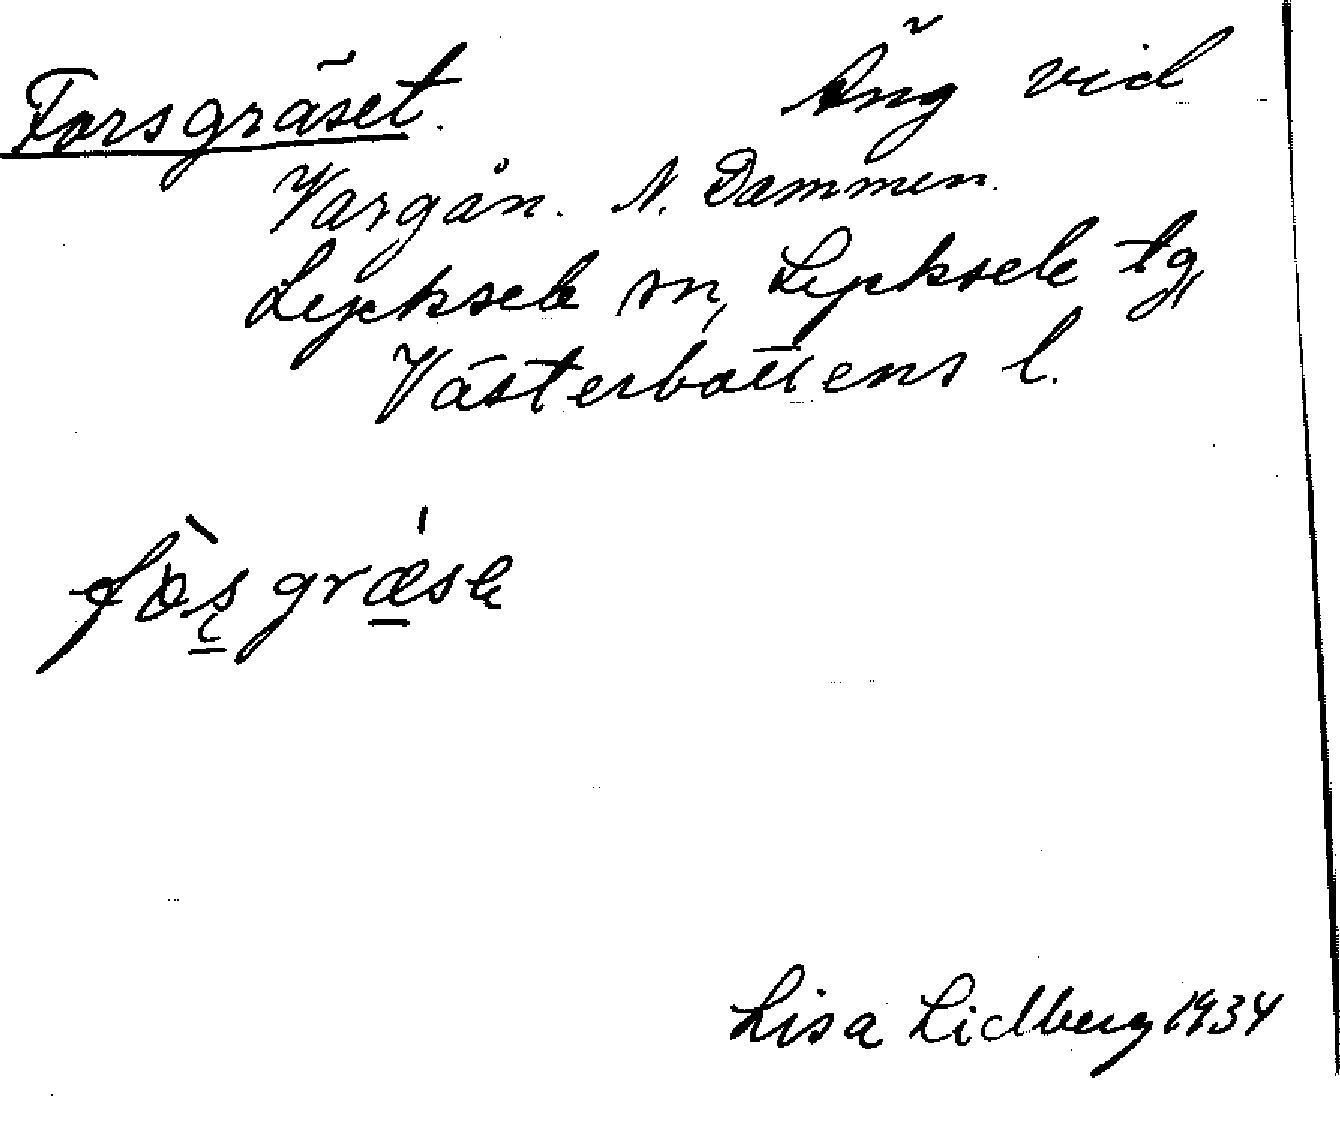 Forsgräset. Äng vid
Vargån. N. Dammen.
Lycksele sn, Lycksele tg,
Västerbottens l.
fò̀ṣgrǽ̠se
Lisa Lidberg 1934